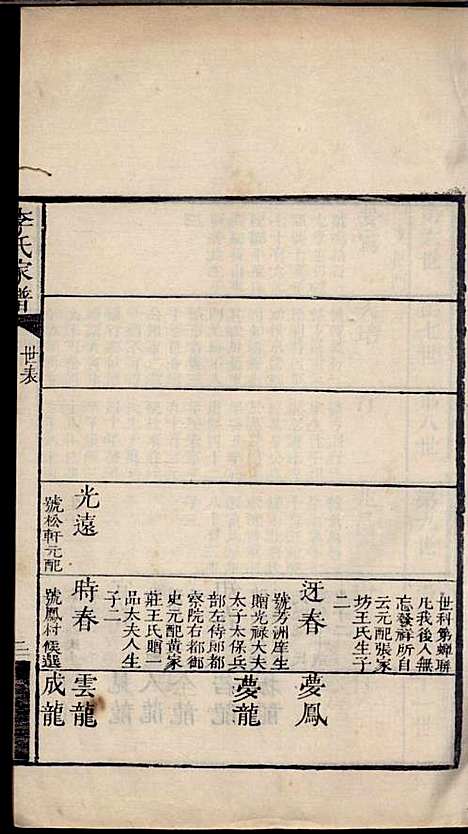 世科第蟬聯
凡我後人無
忘發祥所自
云元配張家
坊王氏生子
二
迓春
號芳洲庠生
贈光祿大夫
太子太保兵
部左侍郎都
察院右都御
史元配黃家
莊王氏贈一
品太夫人生
子二
夢鳳
夢龍
光遠
號松軒元配
時春
號鳳村候選
雲龍
成龍
李氏家譜
世表
二